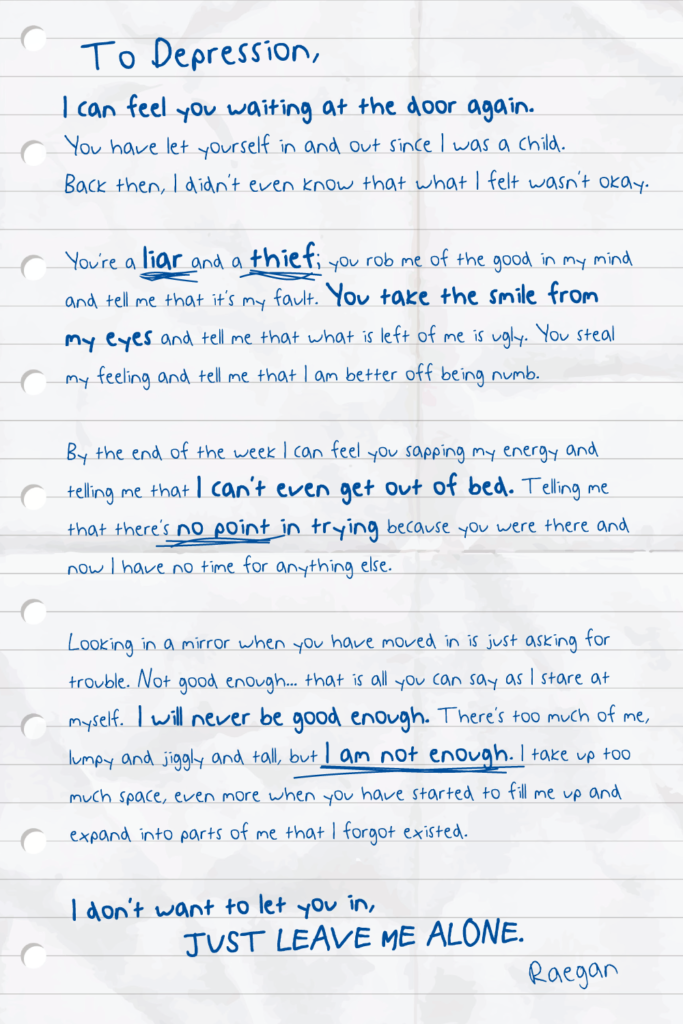 To Depression,
I can feel you waiting at the door again.
You have let yourself in and out since I was a child.
Back then, I didn't even know that what I felt wasn't okay.
You're a liar and a thief; you rob me of the good in my mind
and tell me that it's my fault. You take the smile from
my eyes and tell me that what is left of me is ugly. You steal
my feeling and tell me that I am better off being numb.
By the end of the week I can feel you sapping my energy and
telling me that I can't even get out of bed. Telling me
that there's no point in trying because you were there and
now I have no time for anything else.
Looking in a mirror when you have moved in is just asking for
trouble. Not good enough... that is all you can say as I stare at
myself. I will never be good enough. There's too much of me,
lumpy and jiggly and tall, but I am not enough. I take up too
much space, even more when you have started to fill me up and
expand into parts of me that I forgot existed.
I don't want to let you in,
JUST LEAVE ME ALONE.
Raegan